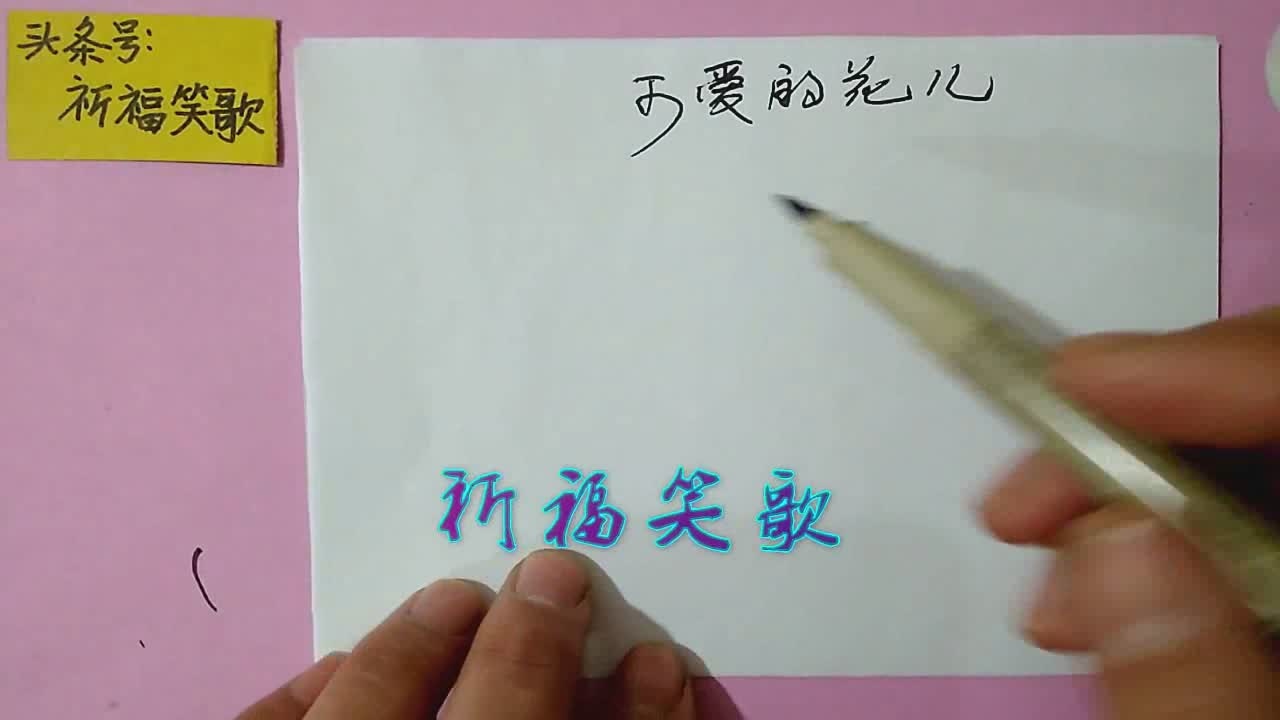 头条号:
祈福笑歌
可爱的花儿
祈福笑歌